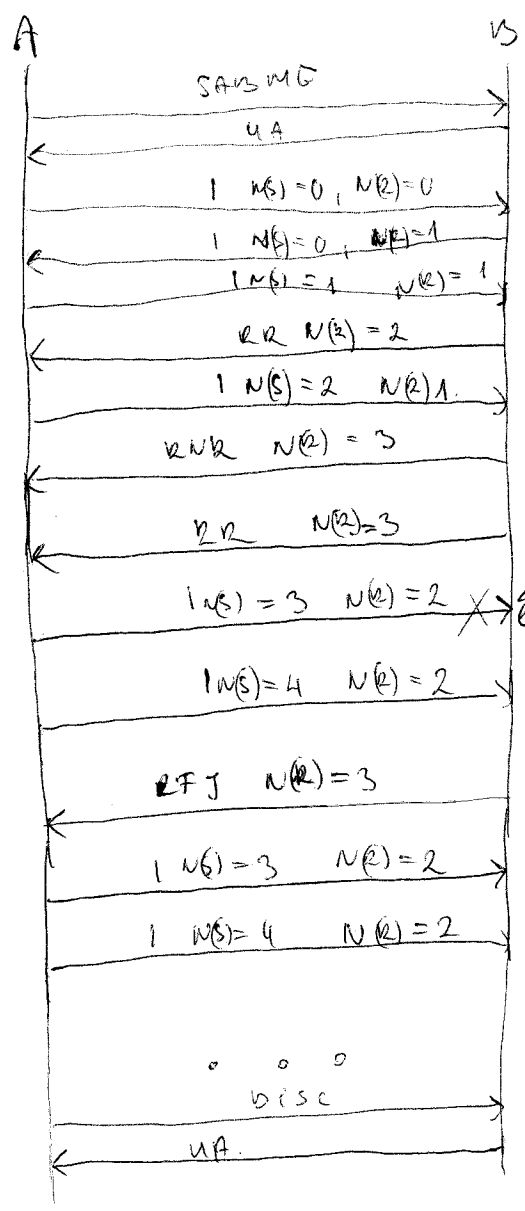 A B
SABME
UA
I N(S)=0, N(R)=0
I N(S)=0, N(R)=1
I N(S)=1 N(R)=1
RR N(R)=2
I N(S)=2 N(R)1.
RNR N(R)=3
RR N(R)=3
I N(S)=3 N(R)=2
I N(S)=4 N(R)=2
REJ N(R)=3
I N(S)=3 N(R)=2
I N(S)=4 N(R)=2
DISC
UA.